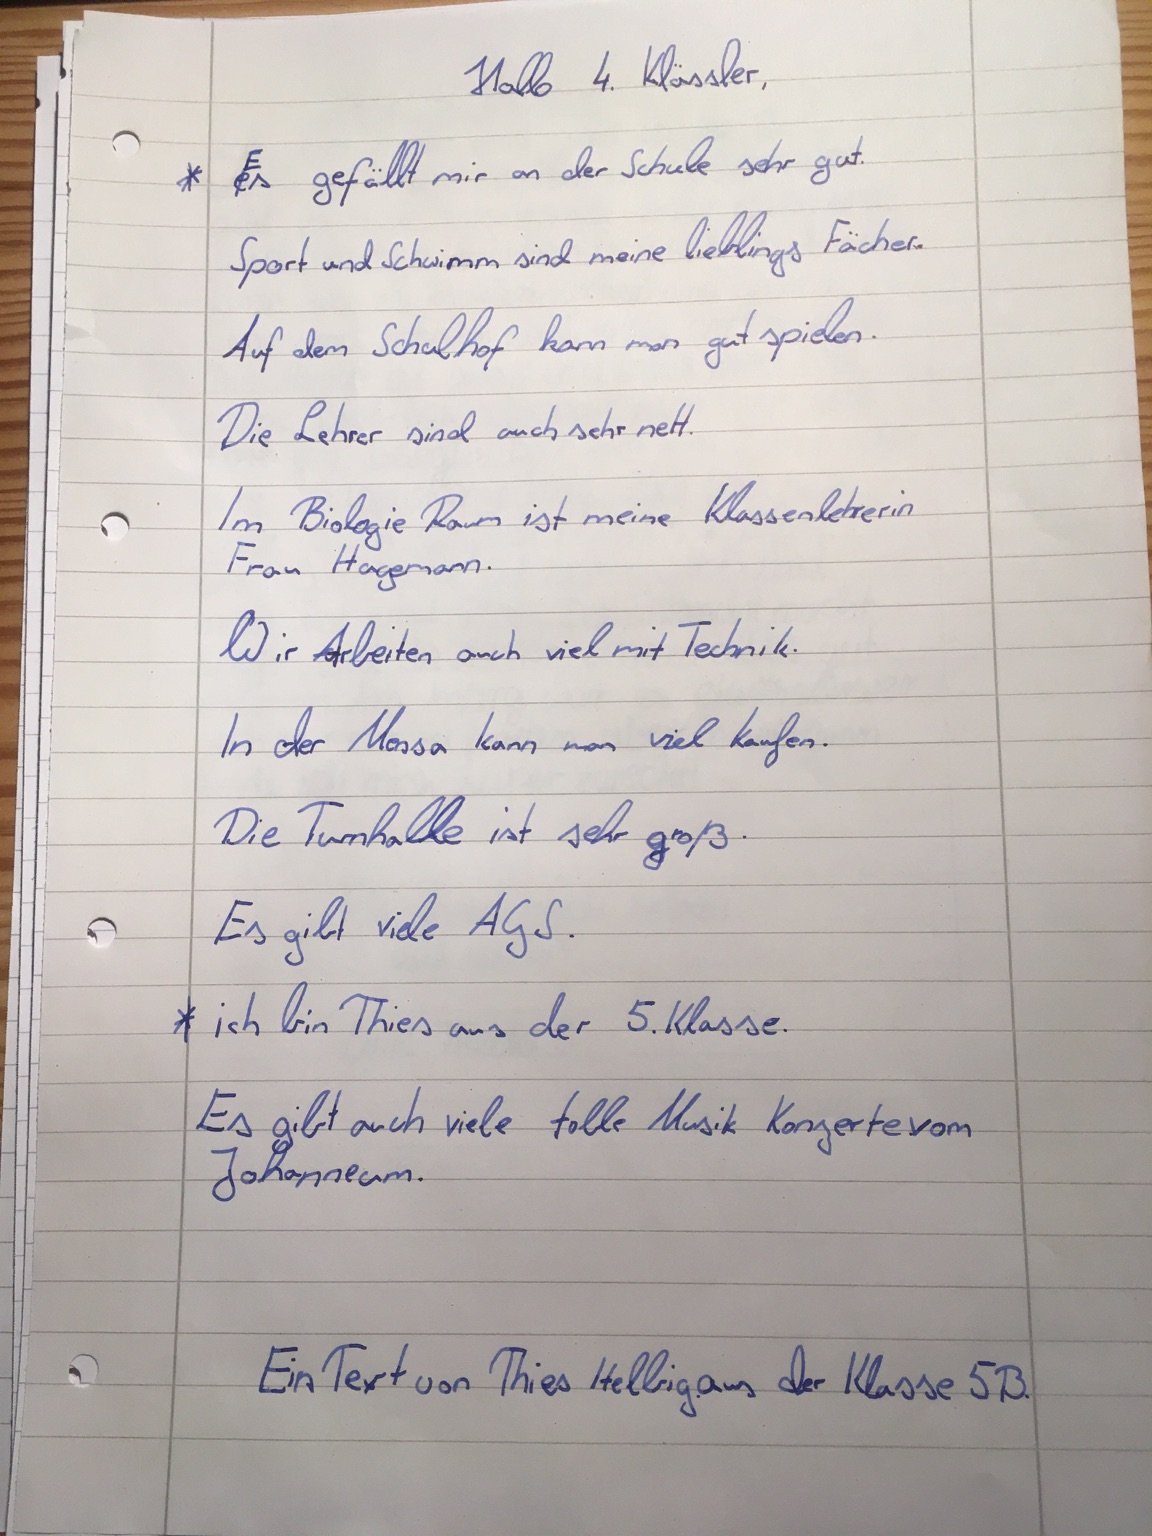 Hallo 4. Klässler,
* Es gefällt mir an der Schule sehr gut.
Sport und Schwimm sind meine lieblings Fächer.
Auf dem Schulhof kann man gut spielen.
Die Lehrer sind auch sehr nett.
Im Biologie Raum ist meine Klassenlehrerin
Frau Hagemann.
Wir Arbeiten auch viel mit Technik.
In der Mensa kann man viel kaufen.
Die Turnhalle ist sehr groß.
Es gibt viele AGS.
* ich bin Thies aus der 5. Klasse.
Es gibt auch viele tolle Musik Konzerte vom
Johanneum.
Ein Text von Thies Helbig aus der Klasse 5B.